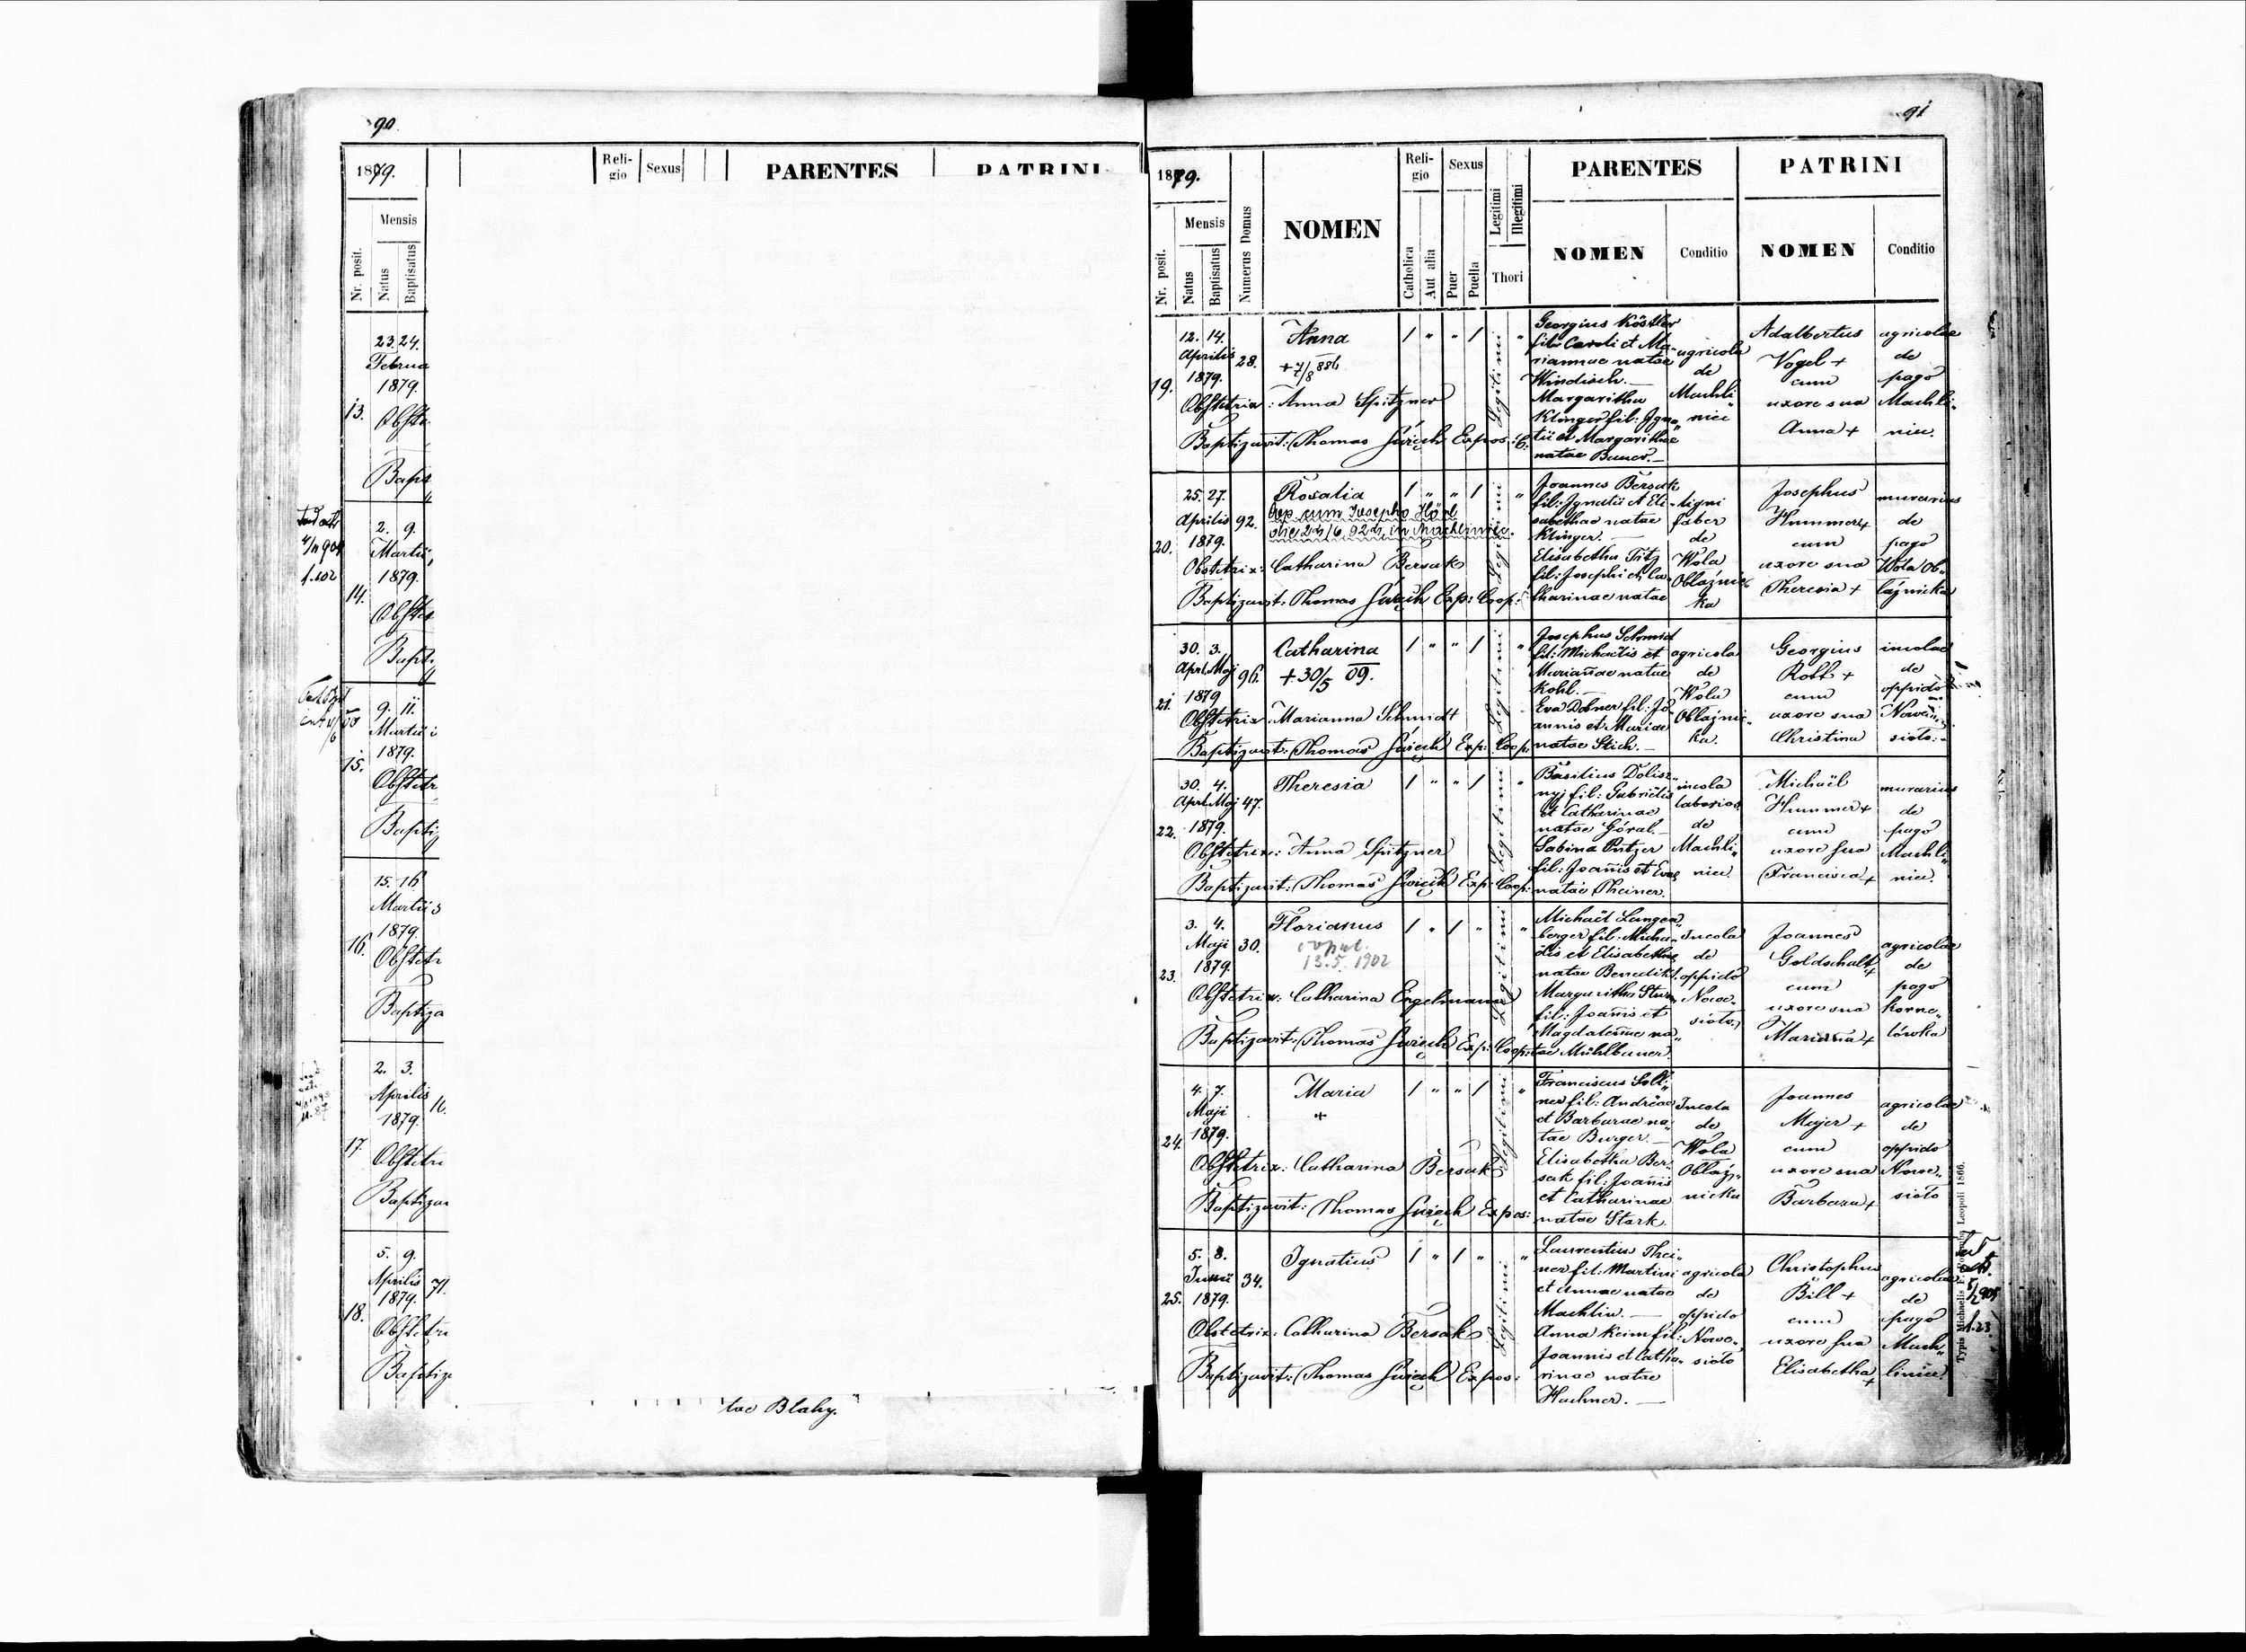 90.
1879.
Reli-
gio
Sexus
PARENTES
PATRINI
Mensis
Nr. posit.
Natus
Baptisatus
23. 24.
Februa
1879.
13.
Obste
Bapt
2. 9.
Martii
1879.
14.
Obstet
Bapti
9. 11.
Martii
1879.
15.
Obstetr
Baptiz
15. 16
Martii
1879.
16.
Obstetr
Baptiza
2. 3.
Aprilis
1879.
17.
Obstetri
Baptizav
5. 9.
Aprilis 71.
1879.
18.
Obstetri
Baptiza
tae Blahy.
91
1879.
Mensis
Nr. posit.
Natus
Baptisatus
Numerus Domus
NOMEN
Reli-
gio
Catholica
Aut alia
Sexus
Puer
Puella
Legitimi
Illegitimi
Thori
PARENTES
NOMEN
Conditio
PATRINI
NOMEN
Conditio
19.
12. 14.
Aprilis
1879.
28.
Anna
+ 7/8 886
Obstetrix: Anna Spitzner
Baptizavit: Thomas Święch Expos: C.
Legitimi
Georgius Köstler
fil: Caroli et Ma-
riannae natae
Windisch. —
Margaritha
Klinger fil: Igna-
tii et Margarithae
natae Bauer. —
agricola
de
Machli-
niec
Adalbertus
Vogel +
cum
uxore sua
Anna +
agricolae
de
pago
Machli-
niec.
20.
25. 27.
Aprilis
1879.
92.
Rosalia
Cop. cum Josepho Höd
die 24/6 924, in Machliniec.
Obstetrix: Catharina Bersak
Baptizavit: Thomas Święch Exp: Coop:
Legitimi
Joannes Bersak
fil: Ignatii et Eli-
sabethae natae
Klinger. —
Elisabetha Fritz
fil: Josephi et Ca-
tharinae natae
ligni
faber
de
Wola
Obłaźnic-
ka
Josephus
Hummer +
cum
uxore sua
Theresia +
murarius
de
pago
Wola Ob-
łaźnicka
21.
30. 3.
Apr. Maj
1879
96.
Catharina
+ 30/5 09.
Obstetrix: Marianna Schmidt
Baptizavit: Thomas Święch Exp: Coop:
Legitimi
Josephus Schmid
fil: Michaelis et
Mariannae natae
Kohl. —
Eva Dobner fil: Jo-
annis et Mariae
natae Stich. —
agricola
de
Wola
Obłaźnic-
ka.
Georgius
Kohl +
cum
uxore sua
Christina
incolae
de
oppido
Nowe-
sioło. -
22.
30. 4.
Apr. Maj
1879.
47.
Theresia
Obstetrix: Anna Spitzner
Baptizavit: Thomas Święch Exp: Coop:
Legitimi
Basilius Dolisz-
nyj fil: Gabrielis
et Catharinae
natae Góral. —
Sabina Pitzer
fil: Joañis et Evae
natae Theiner.
incola
laborios.
de
Machli-
niec.
Michaël
Hummer +
cum
uxore sua
Francisca +
murarius
de
pago
Machli-
niec.
23.
3. 4.
Maji
1879.
30.
Florianus
copul.
13.5. 1902
Obstetrix: Catharina Engelmann
Baptizavit: Thomas Święch Exp: Coop:
Legitimi
Michaël Langen-
berger fil: Micha-
ëlis et Elisabethae
natae Benedikt.
Margaritha Sturm
fil: Joañis et
Magdalenae na-
tae Mühlbauer.
Incola
de
oppido
Nowe-
sioło.
Joannes
Goldschalt +
cum
uxore sua
Mariaña +
agricolae
de
pago
Korne-
lówka
24.
4. 7.
Maji
1879.
Maria
+
Obstetrix: Catharina Bersak
Baptizavit: Thomas Święch Expos:
Legitimi
Franciscus Soll-
ner fil: Andreae
et Barbarae na-
tae Burger. —
Elisabetha Ber-
sak fil: Joañis
et Catharinae
natae Stark.
Incola
de
Wola
Obłaź-
nicka
Joannes
Mejer +
cum
uxore sua
Barbara +
agricolae
de
oppido
Nowe-
sioło
25.
5. 8.
Junii
1879.
34.
Ignatius
Obstetrix: Catharina Bersak
Baptizavit: Thomas Święch Expos:
Legitimi
Laurentius Thei-
ner fil: Martini
et Annae natae
Machlin. —
Anna Keim fil:
Joannis et Catha-
rinae natae
Hachner. —
agricola
de
oppido
Nowe-
sioło
Christophus
Bill +
cum
uxore sua
Elisabetha +
agricolae
de
pago
Mach-
liniec